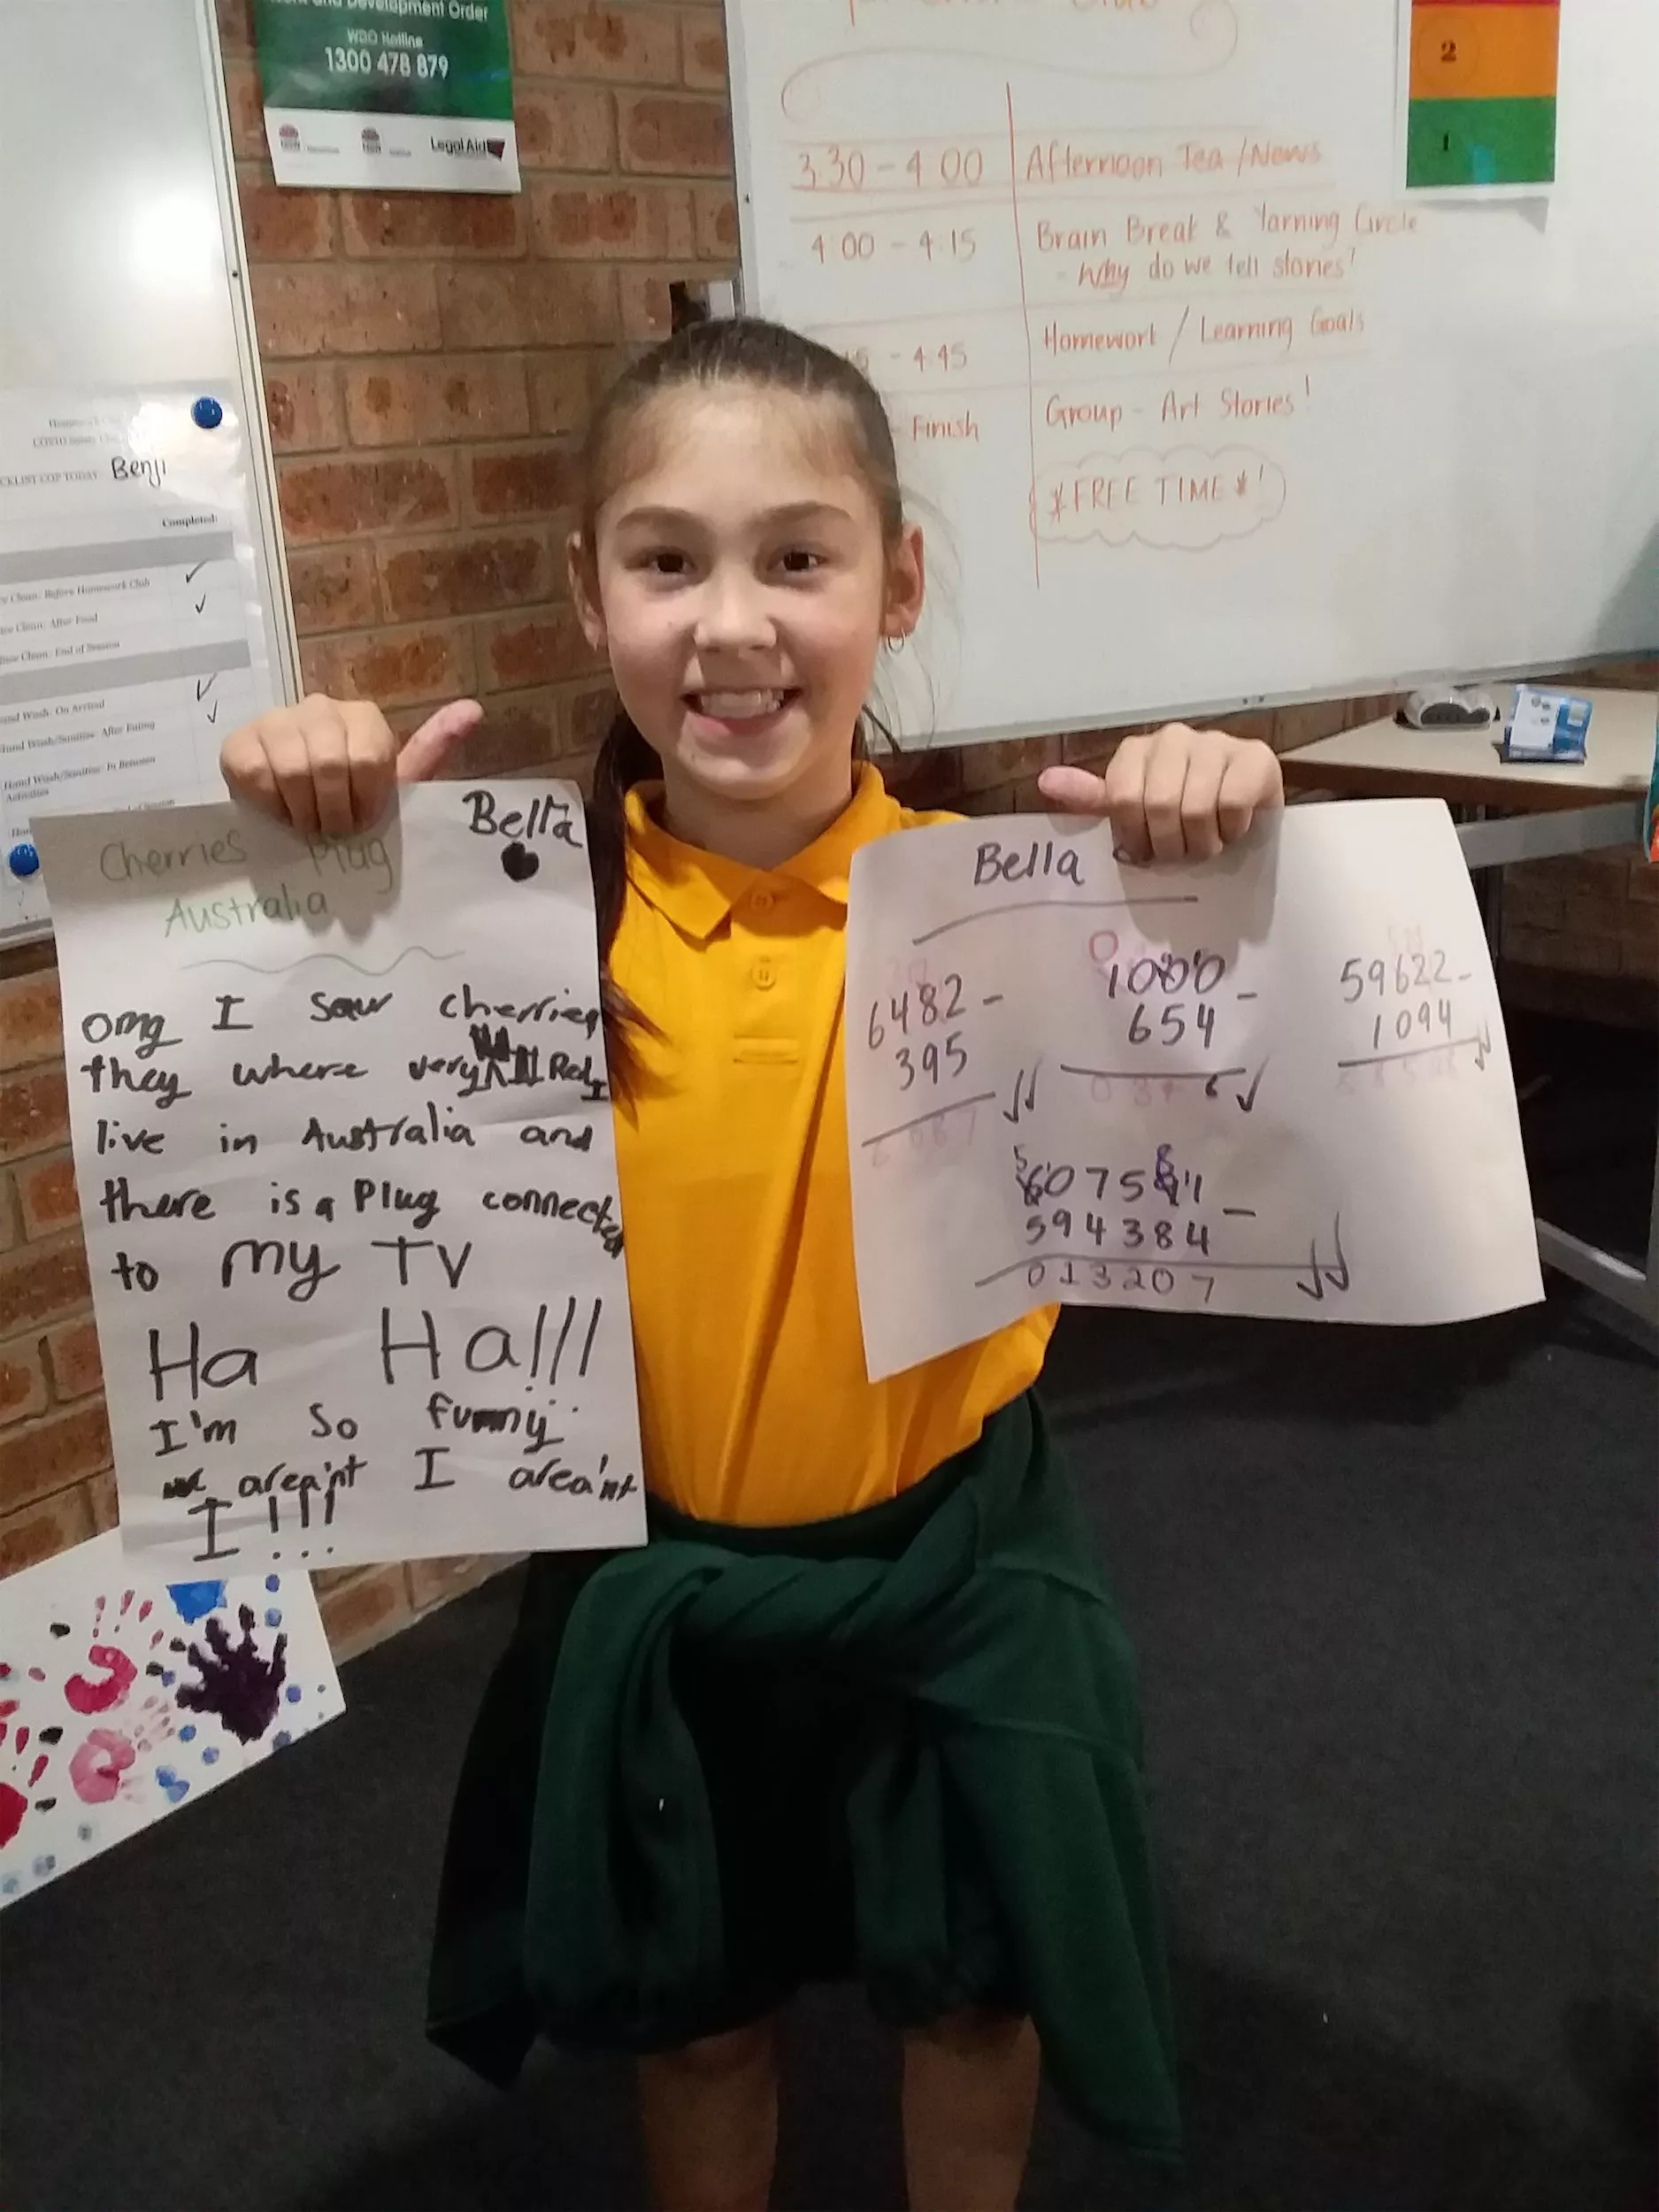 Development Order
WDO Hotline
1300 478 879
Legal Aid
2
1
3.30 - 4.00 Afternoon Tea / News
4.00 - 4.15 Brain Break & Yarning Circle
- Why do we tell stories!
- 4.45 Homework / Learning Goals
- Finish Group - Art Stories!
*FREE TIME*!
CKLIST COP TODAY: Benji
Completed:
Clean: Before Homework Club
Clean: After Food
Clean: End of Season
Hand Wash: On Arrival
Hand Wash/Sanitise: After Eating
Hand Wash/Sanitise: In Between
Activities
Bella
Cherries Plug
Australia
omg I saw cherries
they where very Red I
live in Australia and
there is a Plug connected
to my TV
Ha Ha!!!
I'm so funny
area'nt I area'nt
I!!!
Bella
6482 -
395
1000 -
654
59622 -
1094
594384 -
013207